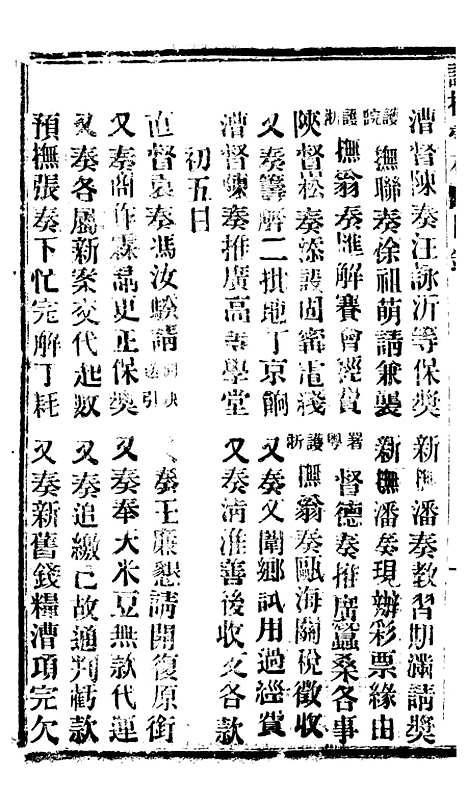 漕督陳奏汪詠沂等保獎
新撫潘奏教習期滿請獎
護院撫聯奏徐祖萌請兼襲
新撫潘奏現辦彩票緣由
護浙撫翁奏匯解賽會經費
署粵督德奏推廣蠶桑各事
陝督崧奏添設固甯電綫
護浙撫翁奏甌海關稅徵收
又奏籌解二批地丁京餉
又奏文闈鄉試用過經費
漕督陳奏推廣高等學堂
又奏淸淮善後收支各款
初五日
直督袁奏馮汝騤請引
又奏王廉懇請開復原銜
又奏商作霖呂吏正保獎
又奏奉天米豆無款代運
又奏各屬新案交代起數
又奏追繳已故通判虧款
預撫張奏下忙完解丁耗
又奏新舊錢糧漕項完欠